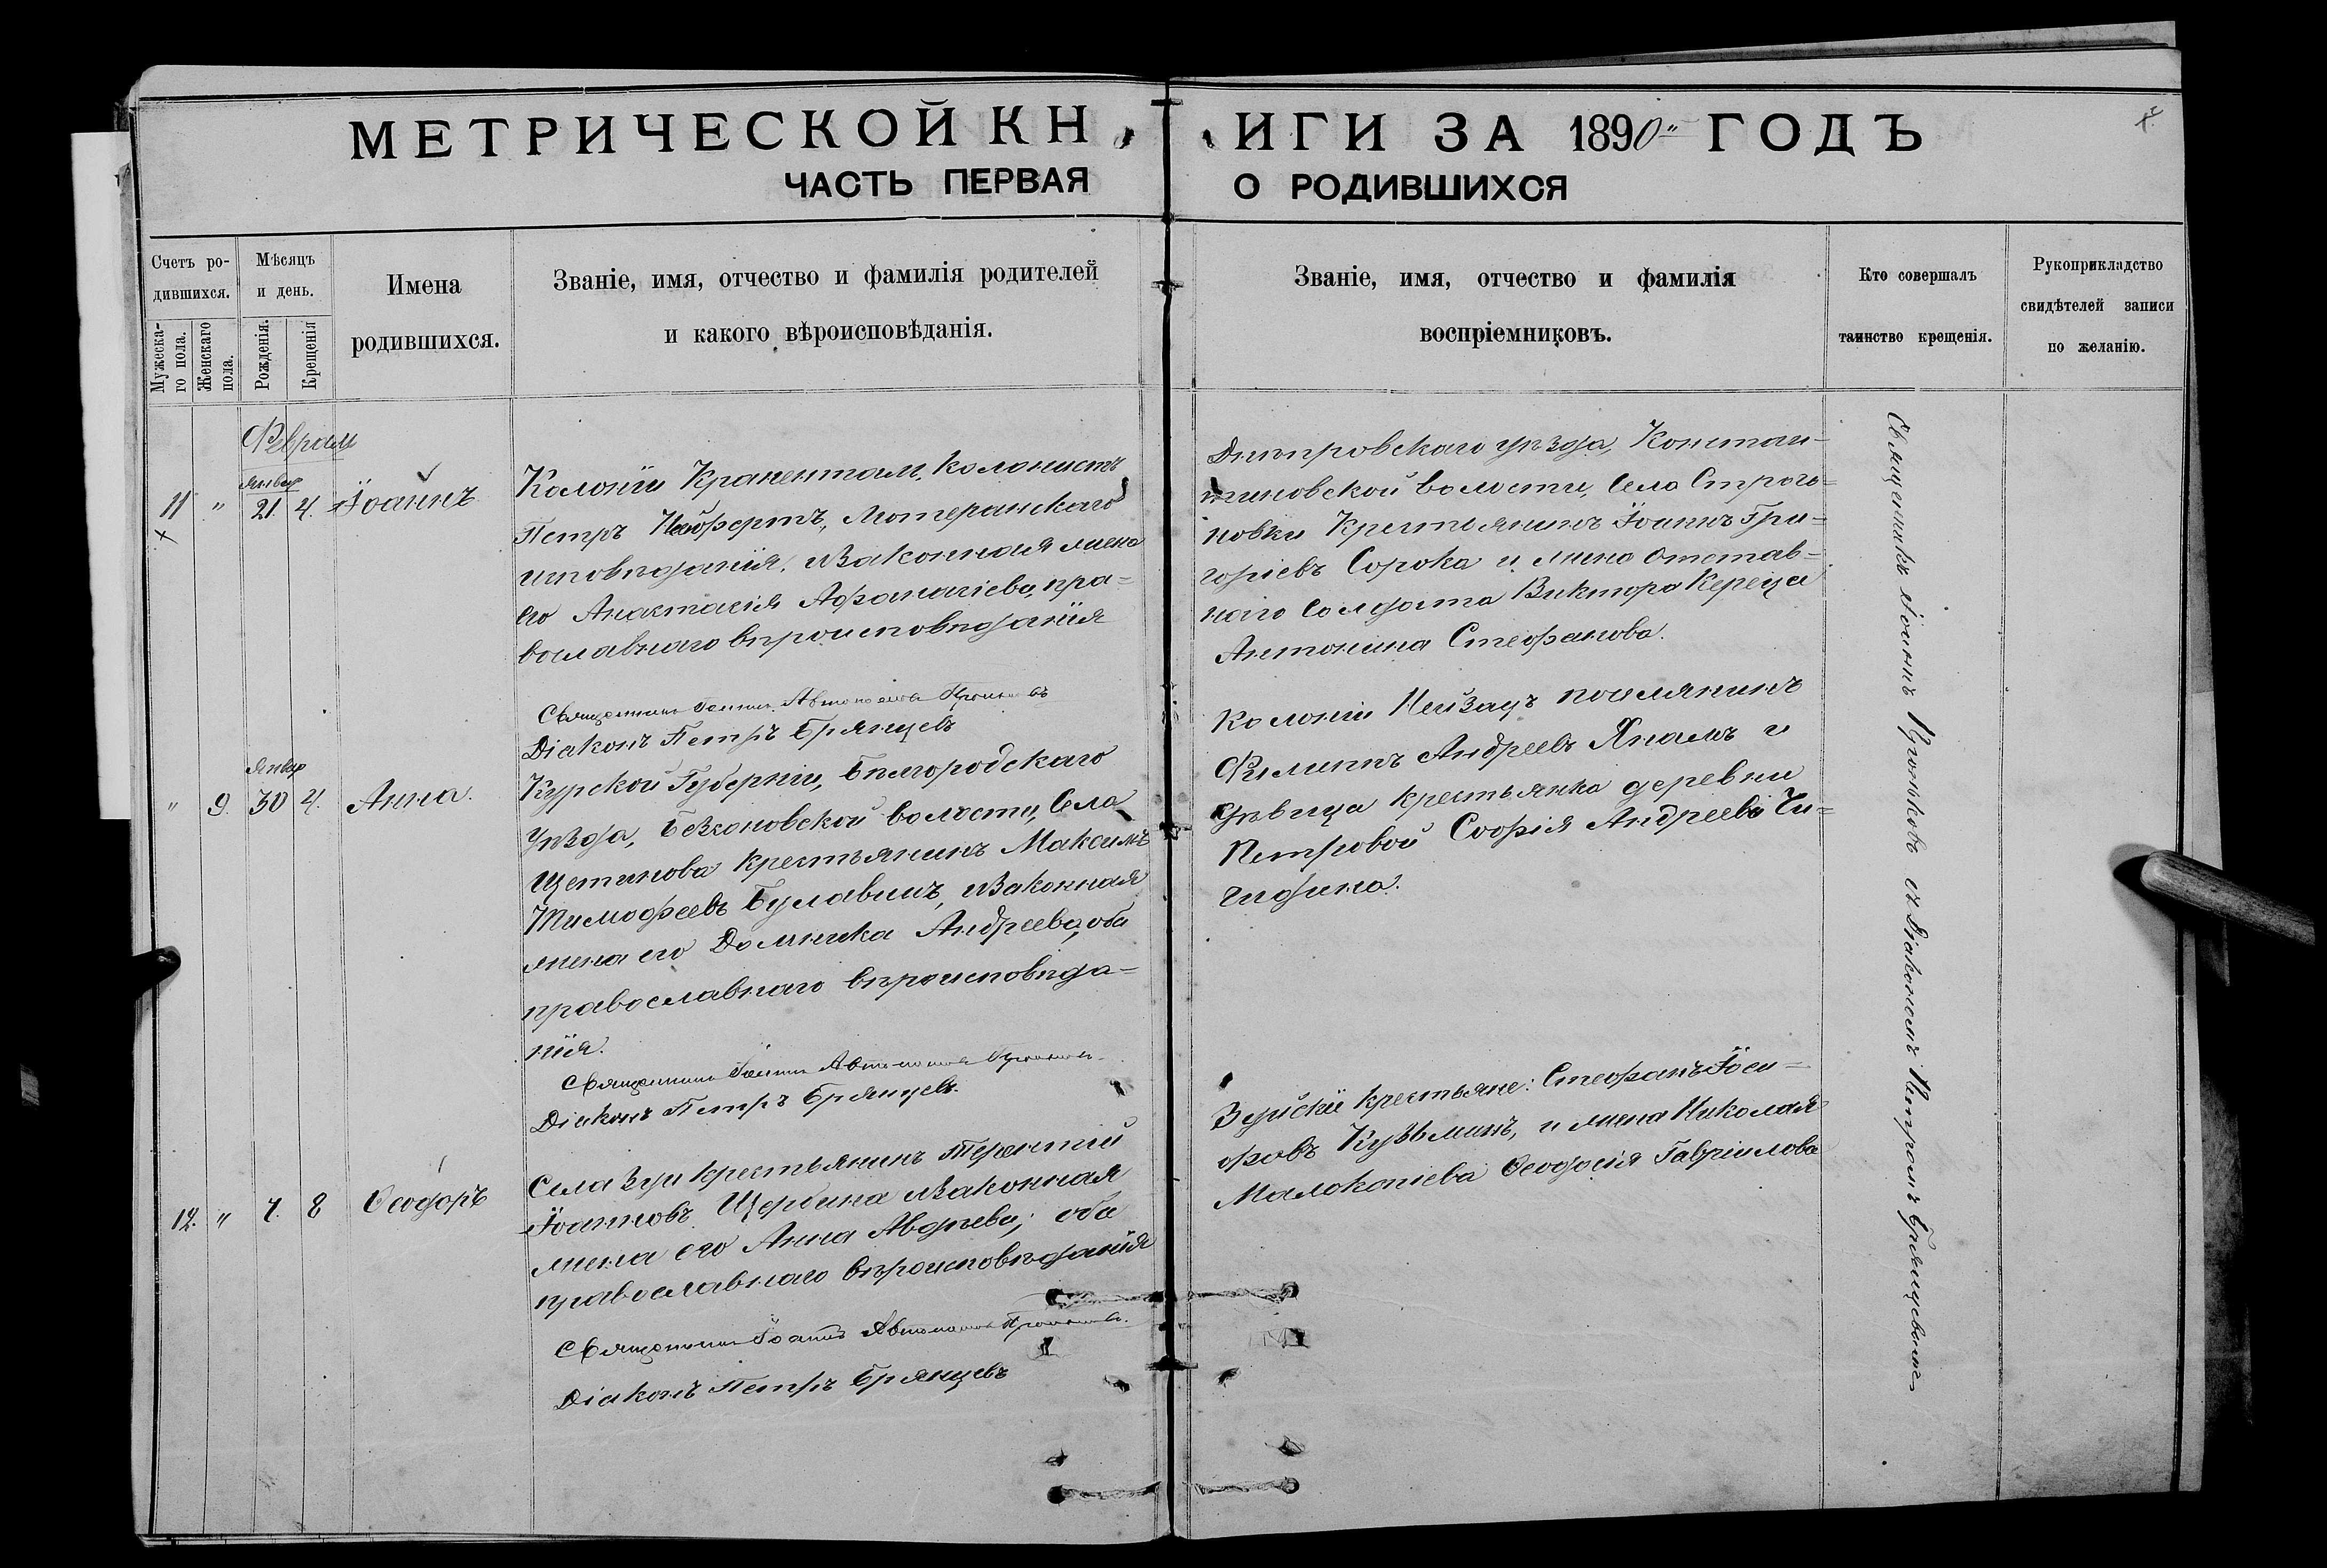 МЕТРИЧЕСКОЙ КНИГИ ЗА 1890 ГОДЪ
ЧАСТЬ ПЕРВАЯ О РОДИВШИХСЯ
Счетъ ро-
дившихся.
Мужеска-
го пола.
Женскаго
пола.
Мѣсяцъ
и день.
Рожденія.
Крещенія
Имена
родившихся.
Званіе, имя, отчество и фамилія родителей
и какого вѣроисповѣданія.
Званіе, имя, отчество и фамилія
воспріемниковъ.
Кто совершалъ
таинство крещенія.
Рукоприкладство
свидѣтелей записи
по желанію.
Февраля
Январ
11 " 21. 4. Іоаннъ
Колоніи Кранентам, колонистъ
Петръ, Лютеранскаго
исповѣданія, и законная жена
его Анастасія Афанасіева, пра-
вославнаго вѣроисповѣданія
Священникъ Іоаннъ Автономовъ
Діаконъ Петръ Брянцевъ
Днѣпровскаго уѣзда, Констан-
тиновской волости, села Строга-
новки Крестьянинъ Іоаннъ Гри-
горіевъ Сорока и жена отстав-
наго солдата Виктора
Антонина Стефанова.
Январ
" 9. 30 4. Анна.
Курской Губерніи, Бѣлгородскаго
уѣзда, волости, Села
Щетинова крестьянинъ Максимъ
Тимофеевъ Булавинъ, и законная
жена его Домника Андреева, оба
православнаго вѣроисповѣда-
нія.
Священникъ Іоаннъ
Діаконъ Петръ Брянцевъ.
Колоніи Нейзацъ поселянинъ
Филиппъ Андреевъ и
дѣвица крестьянка деревни
Петровой Софія Андреева Чи-
гидина.
12. " 7. 8 Ѳеодоръ
Села Зуи крестьянинъ Терентій
Іоанновъ Щербина и законная
жена его Анна Авдѣева; оба
православнаго вѣроисповѣданія
Священникъ Іоаннъ
Діаконъ Петръ Брянцевъ
Зуйскіе крестьяне: Стефанъ Іоси-
фовъ Кузьминъ, и жена Николая
Ѳеодосія Гавріилова
Священникъ Іоаннъ съ Діакономъ Петромъ Брянцевымъ